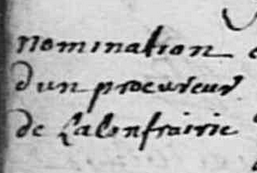 nomination
dun procureur
de La Confrairie